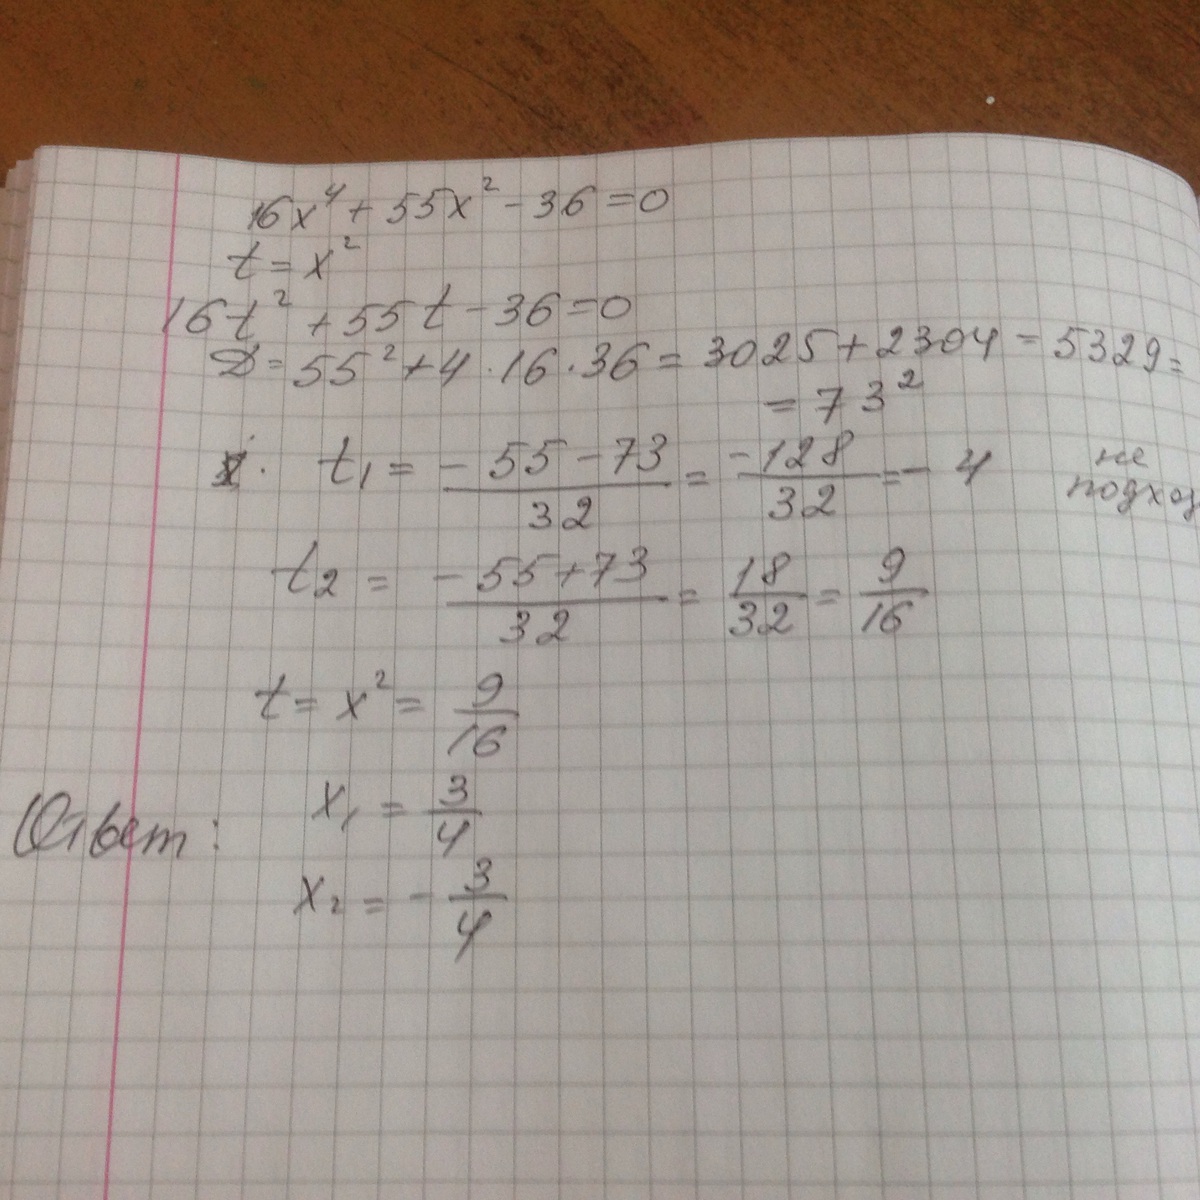 16x⁴ + 55x² - 36 = 0
t = x²
16t² + 55t - 36 = 0
D = 55² + 4 · 16 · 36 = 3025 + 2304 = 5329 =
= 73²
t₁ = (-55 - 73)/32 = -128/32 = - 4 не
подход
t₂ = (-55 + 73)/32 = 18/32 = 9/16
t = x² = 9/16
Ответ: x₁ = 3/4
x₂ = - 3/4